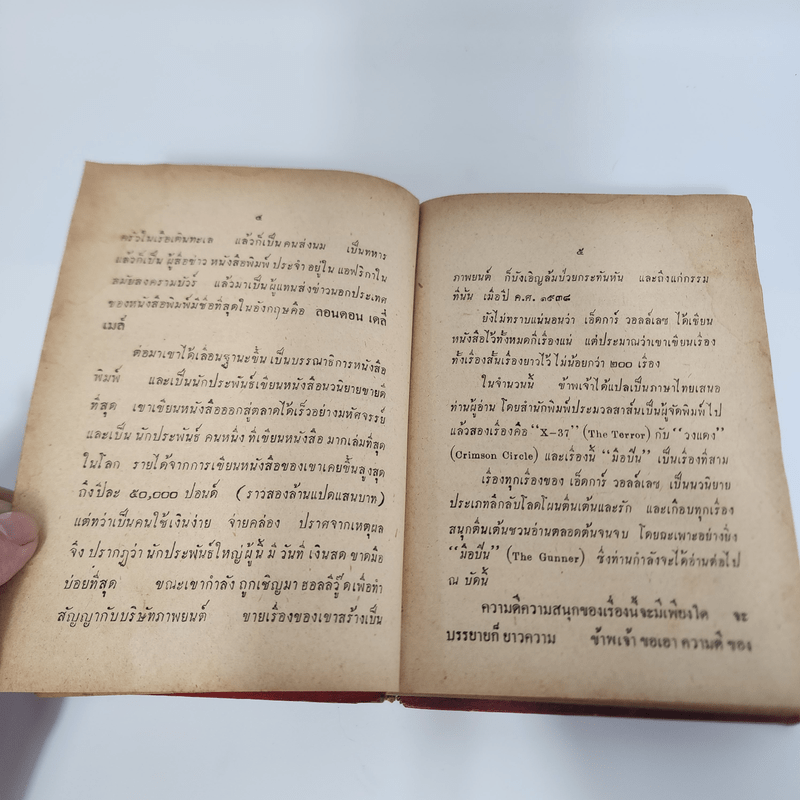 ๔
ครัวในเรือเดินทะเล แล้วก็เป็นคนส่งนม เป็นทหาร
แล้วก็เป็น ผู้สื่อข่าว หนังสือพิมพ์ ประจำ อยู่ใน แอฟริกาใน
สมัยสงครามบัวร์ แล้วมาเป็นผู้แทนส่งข่าวนอกประเทศ
ของหนังสือพิมพ์มีชื่อที่สุดในอังกฤษคือ ลอนดอน เดลี่
เมล์
ต่อมาเขาได้เลื่อนฐานะขึ้น เป็นบรรณาธิการหนังสือ
พิมพ์ และเป็นนักประพันธ์เขียนหนังสือนวนิยายขายดี
ที่สุด เขาเขียนหนังสือออกสู่ตลาดได้เร็วอย่างมหัศจรรย์
และเป็น นักประพันธ์ คนหนึ่ง ที่เขียนหนังสือ มากเล่มที่สุด
ในโลก รายได้จากการเขียนหนังสือของเขาเคยขึ้นสูงสุด
ถึงปีละ ๕๐,๐๐๐ ปอนด์ (ราวสองล้านแปดแสนบาท)
แต่ทว่าเป็นคนใช้เงินง่าย จ่ายคล่อง ปราศจากเหตุผล
จึง ปรากฏว่า นักประพันธ์ใหญ่ผู้นี้ มี วันที่ เงินสด ขาดมือ
บ่อยที่สุด ขณะเขากำลัง ถูกเชิญมา ฮอลลิวู๊ด เพื่อทำ
สัญญากับบริษัทภาพยนต์ ขายเรื่องของเขาสร้างเป็น
๕
ภาพยนต์ ก็บังเอิญล้มป่วยกระทันหัน และถึงแก่กรรม
ที่นั้น เมื่อปี ค.ศ. ๑๙๓๘
ยังไม่ทราบแน่นอนว่า เอ็ดการ์ วอลล์เลซ ได้เขียน
หนังสือไว้ทั้งหมดกี่เรื่องแน่ แต่ประมาณว่าเขาเขียนเรื่อง
ทั้งเรื่องสั้นเรื่องยาวไว้ ไม่น้อยกว่า ๒๐๐ เรื่อง
ในจำนวนนี้ ข้าพเจ้าได้แปลเป็นภาษาไทยเสนอ
ท่านผู้อ่าน โดยสำนักพิมพ์ประมวลสาส์นเป็นผู้จัดพิมพ์ไป
แล้วสองเรื่องคือ “X-37” (The Terror) กับ “วงแดง”
(Crimson Circle) และเรื่องนี้ “มือปืน” เป็นเรื่องที่สาม
เรื่องทุกเรื่องของ เอ็ดการ์ วอลล์เลซ เป็นนวนิยาย
ประเภทลึกลับโลดโผนตื่นเต้นและรัก และเกือบทุกเรื่อง
สนุกตื่นเต้นชวนอ่านตลอดต้นจนจบ โดยฉะเพาะอย่างยิ่ง
“มือปืน” (The Gunner) ซึ่งท่านกำลังจะได้อ่านต่อไป
ณ บัดนี้
ความดีความสนุกของเรื่องนี้จะมีเพียงใด จะ
บรรยายก็ ยาวความ ข้าพเจ้า ขอเอา ความดี ของ